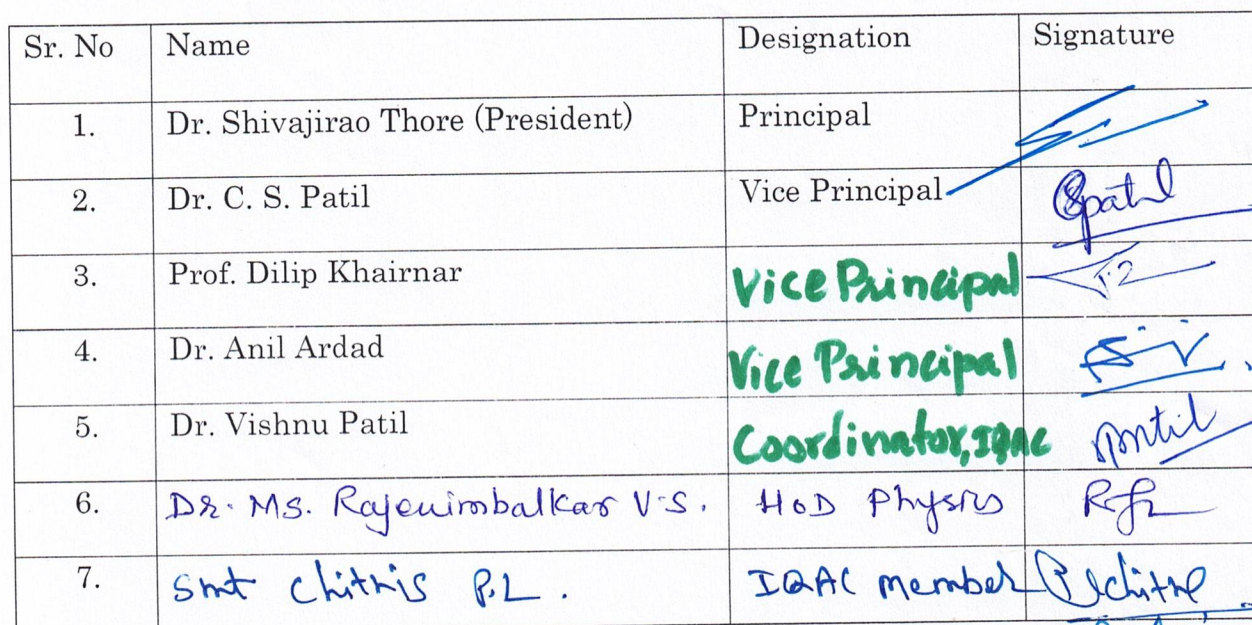 Sr. No Name Designation Signature
1. Dr. Shivajirao Thore (President) Principal
2. Dr. C. S. Patil Vice Principal
3. Prof. Dilip Khairnar Vice Principal
4. Dr. Anil Ardad Vice Principal
5. Dr. Vishnu Patil Coordinator, IQAC
6. Dr. Ms. Rajenimbalkar V.S. HOD Physics
7. Smt Chitnis P.L. IQAC member